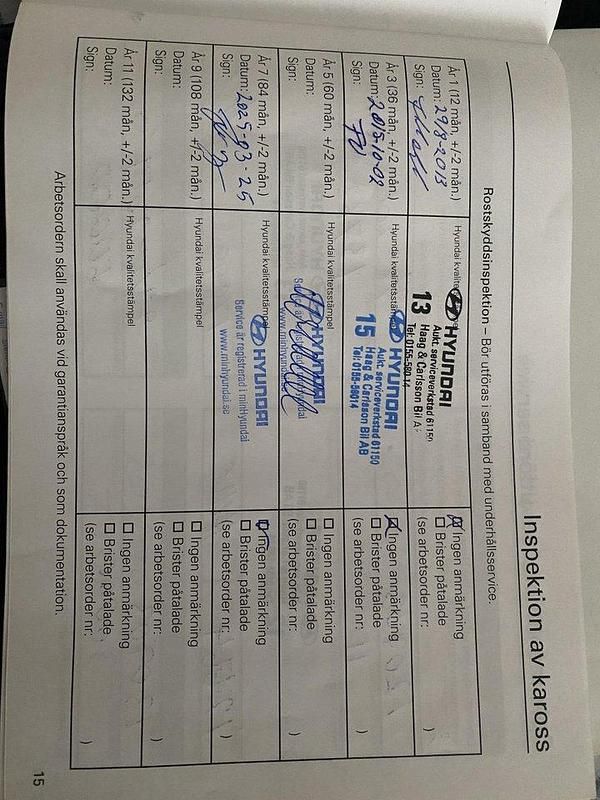 Inspektion av kaross
Rostskyddsinspektion – Bör utföras i samband med underhållsservice.
År 1 (12 mån, +/-2 mån.)
Datum: 29/8-2013
Sign:
Hyundai kvalitetsstämpel
HYUNDAI
Aukt. serviceverkstad 61150
13 Haag & Carlsson Bil A
Tel: 0155-580 14
Ingen anmärkning
Brister påtalade
(se arbetsorder nr: )
År 3 (36 mån, +/-2 mån.)
Datum: 2015-10-02
Sign:
Hyundai kvalitetsstäm
HYUNDAI
Aukt. serviceverkstad 61150
15 Haag & Carlsson Bil AB
Tel: 0155-58014
Ingen anmärkning
Brister påtalade
(se arbetsorder nr: )
År 5 (60 mån, +/-2 mån.)
Datum:
Sign:
Hyundai kvalitetsstämpel
HYUNDAI
www.minhyundai
Ingen anmärkning
Brister påtalade
(se arbetsorder nr: )
År 7 (84 mån, +/-2 mån.)
Datum: 2025-03-25
Sign:
Hyundai kvalitetsstämpel
HYUNDAI
Service är registrerad i minhyundai
www.minhyundai.se
Ingen anmärkning
Brister påtalade
(se arbetsorder nr: )
År 9 (108 mån, +/-2 mån.)
Datum:
Sign:
Hyundai kvalitetsstämpel
Ingen anmärkning
Brister påtalade
(se arbetsorder nr: )
År 11 (132 mån, +/-2 mån.)
Datum:
Sign:
Hyundai kvalitetsstämpel
Ingen anmärkning
Brister påtalade
(se arbetsorder nr: )
Arbetsordern skall användas vid garantianspråk och som dokumentation.
15